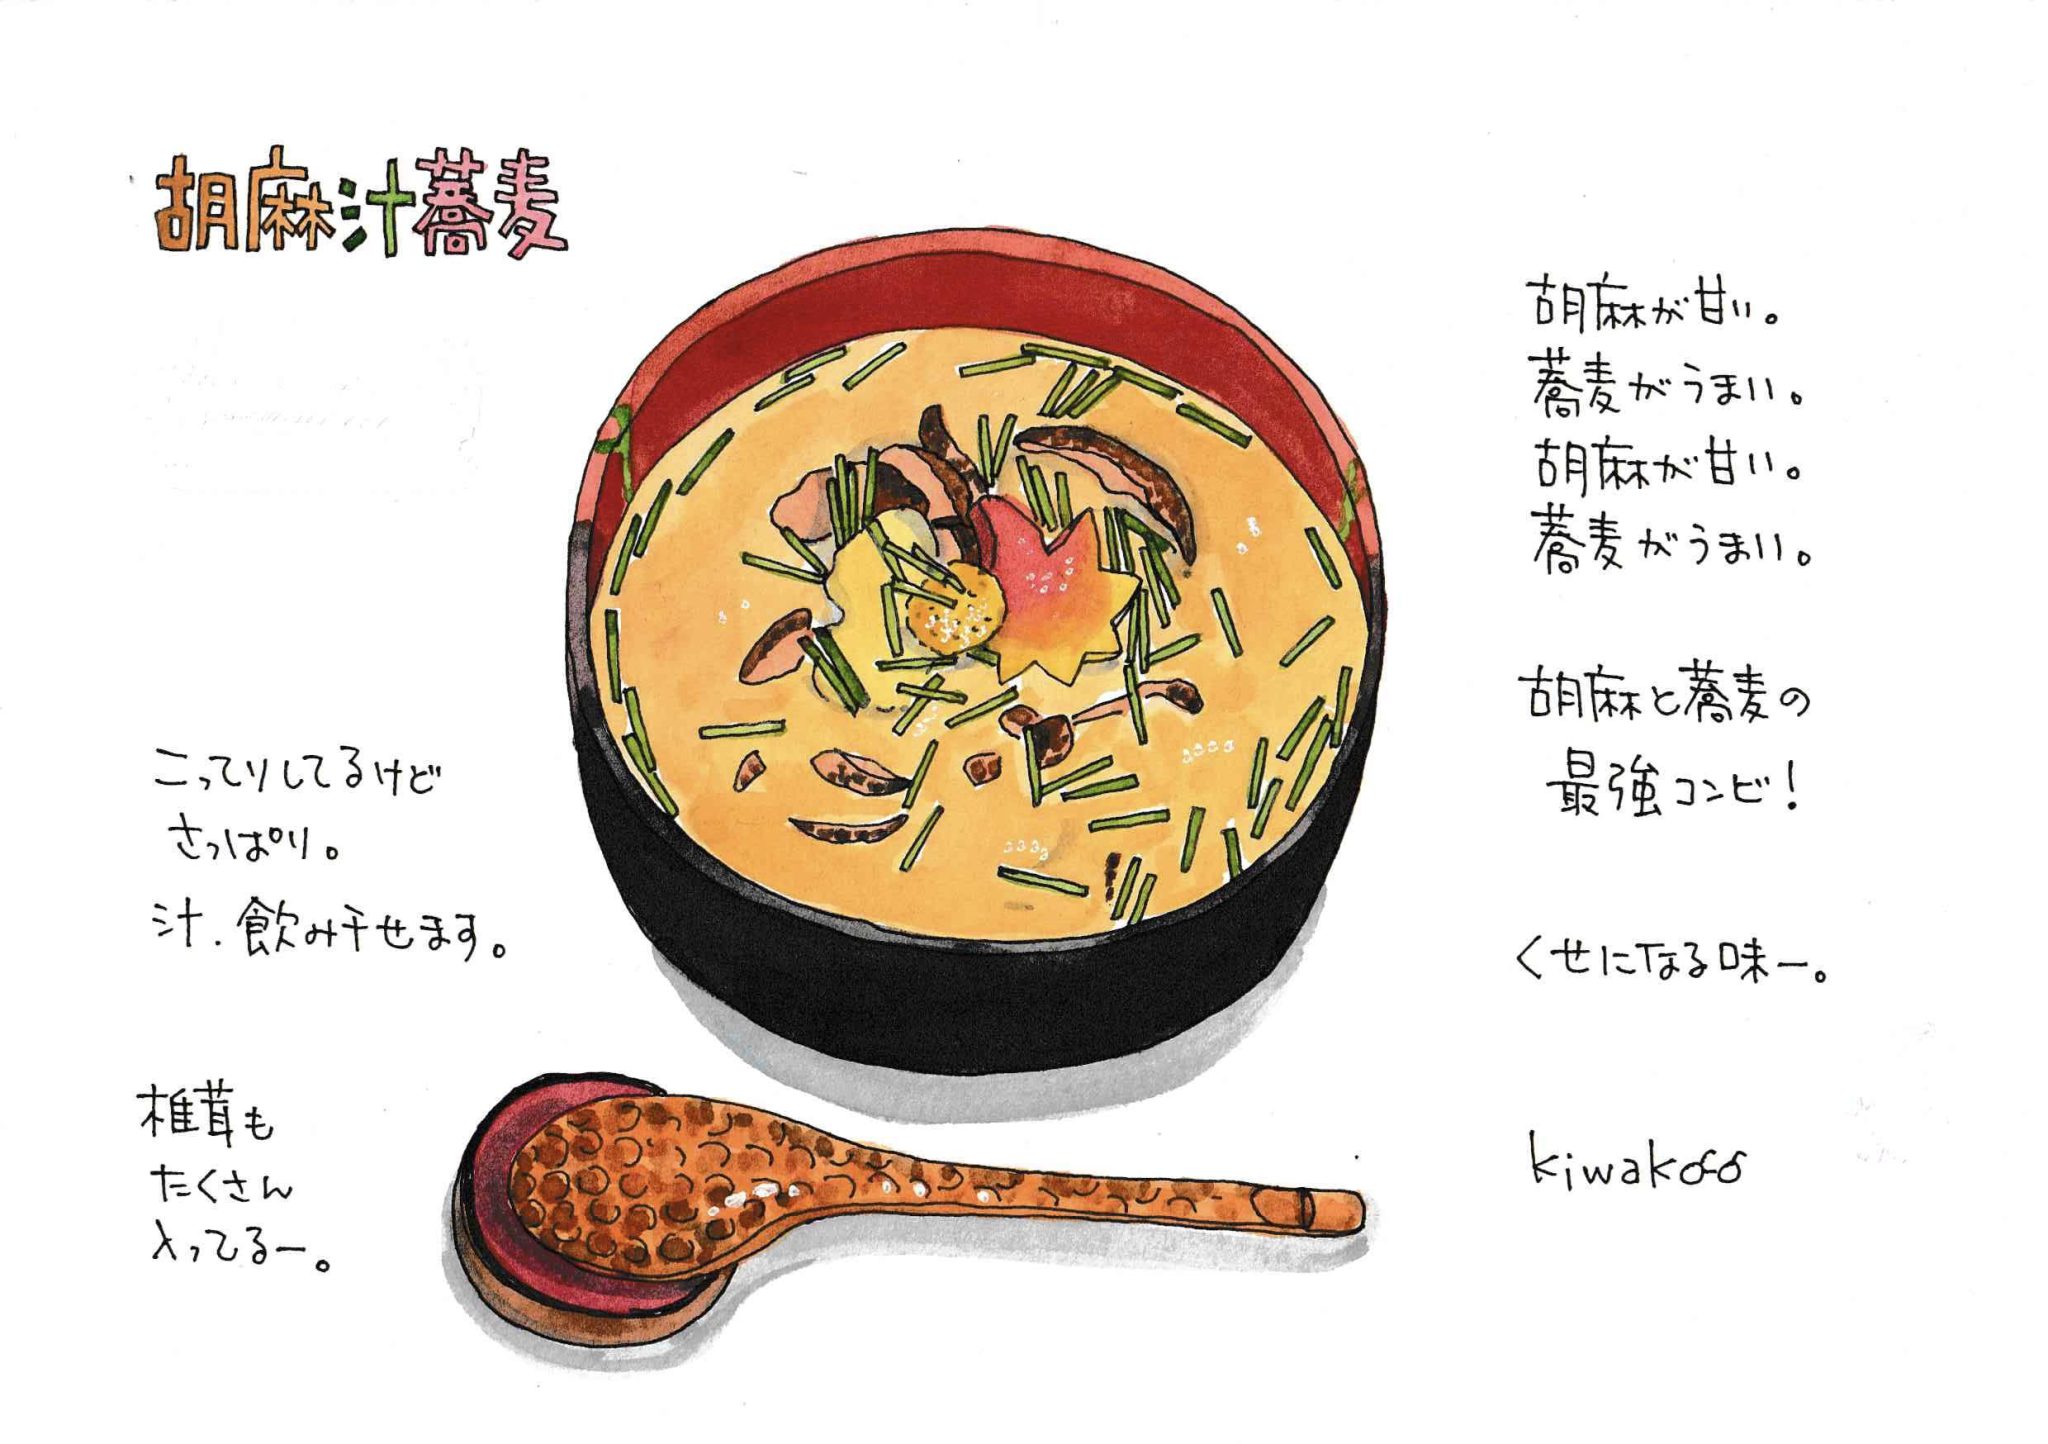 胡麻汁蕎麦
胡麻が甘い。
蕎麦がうまい。
胡麻が甘い。
蕎麦がうまい。
胡麻と蕎麦の
最強コンビ！
くせになる味ー。
こってりしてるけど
さっぱり。
汁、飲み干せます。
椎茸も
たくさん
入ってるー。
kiwakoo